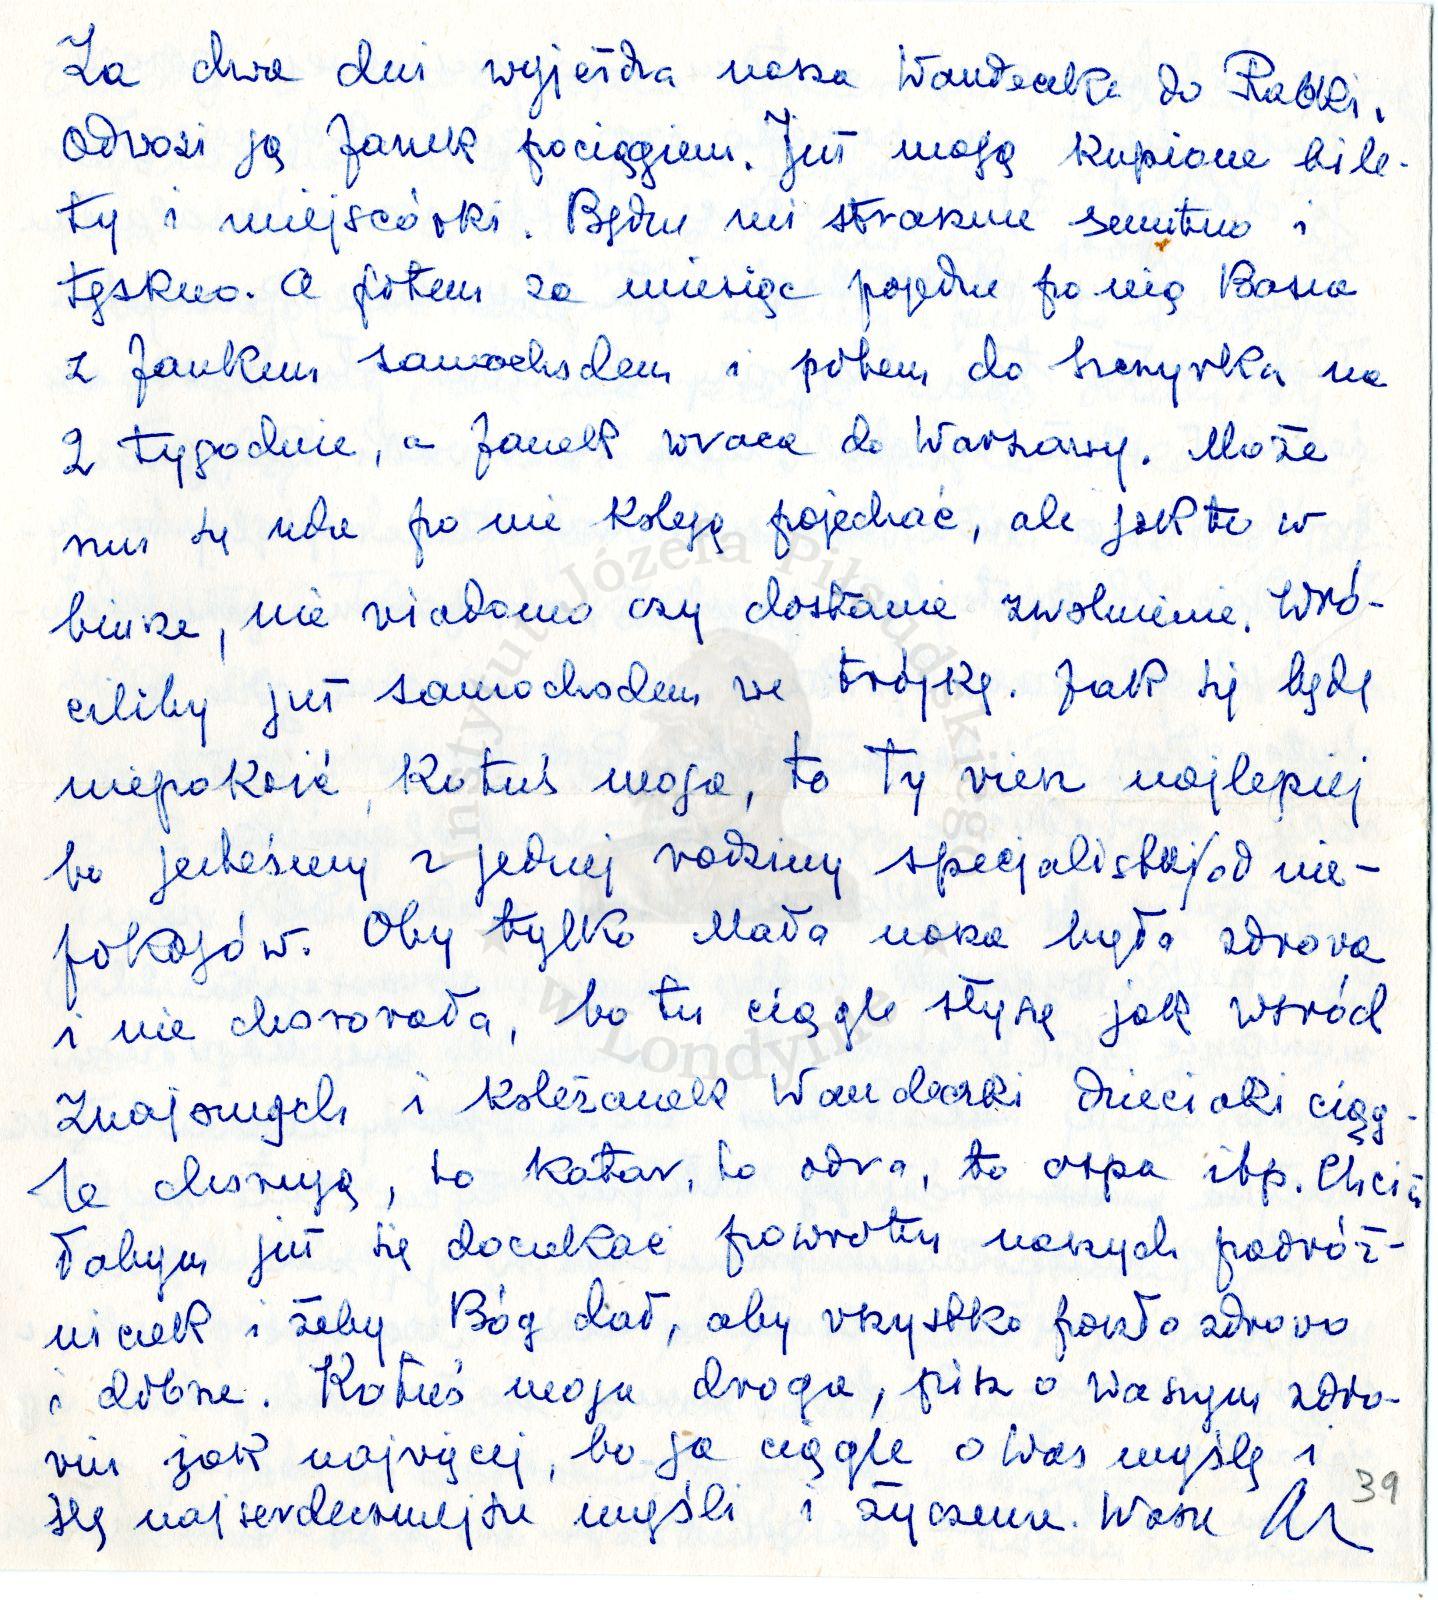 Za dwa dni wyjeżdża nasza Wandeczka do Rabki.
Odwozi ją Janek pociągiem. Już mają kupione bile-
ty i miejscówki. Będzie mi strasznie smutno i
tęskno. A potem za miesiąc pojedzie po nią Basia
z Jankiem samochodem i potem do Szczyrku na
2 tygodnie, a Janek wraca do Warszawy. Może
mu się uda po nie koleją pojechać, ale jak to w
biurze, nie wiadomo czy dostanie zwolnienie. Wró-
ciliby już samochodem we trójkę. Jak się będę
niepokoić, Kotuś moja, to Ty wiesz najlepiej
bo jesteśmy z jednej rodziny specjalistką/od nie-
pokojów. Oby tylko Mała nasza była zdrowa
i nie chorowała, bo tu ciągle słyszę jak wśród
znajomych i koleżanek Wandeczki dzieciaki ciąg-
le chorują, to katar, to odra, to ospa itp. Chcia
łabym już się doczekać powrotu naszych podróż-
niczek i żeby Bóg dał, aby wszystko poszło zdrowo
i dobrze. Kotuś moja droga, pisz o Waszym zdro-
wiu jak najwięcej, bo ja ciągle o Was myślę i
ślę najserdeczniejsze myśli i życzenia. Wasza
39
Instytut Józefa Piłsudskiego
w Londynie